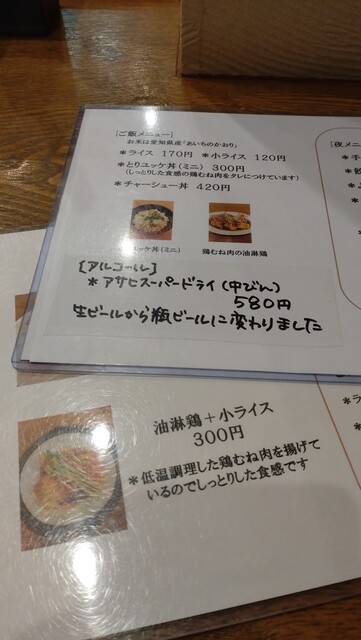 [ご飯メニュー]
お米は愛知県産「あいちのかおり」
＊ライス 170円 ＊小ライス 120円
＊とりユッケ丼(ミニ) 300円
(しっとりした食感の鶏むね肉をタレにつけています)
＊チャーシュー丼 420円
ユッケ丼(ミニ) 鶏むね肉の油淋鶏
[アルコール]
＊アサヒスーパードライ(中びん)
580円
生ビールから瓶ビールに変わりました
[夜メニ
油淋鶏＋小ライス
300円
＊低温調理した鶏むね肉を揚げて
いるのでしっとりした食感です